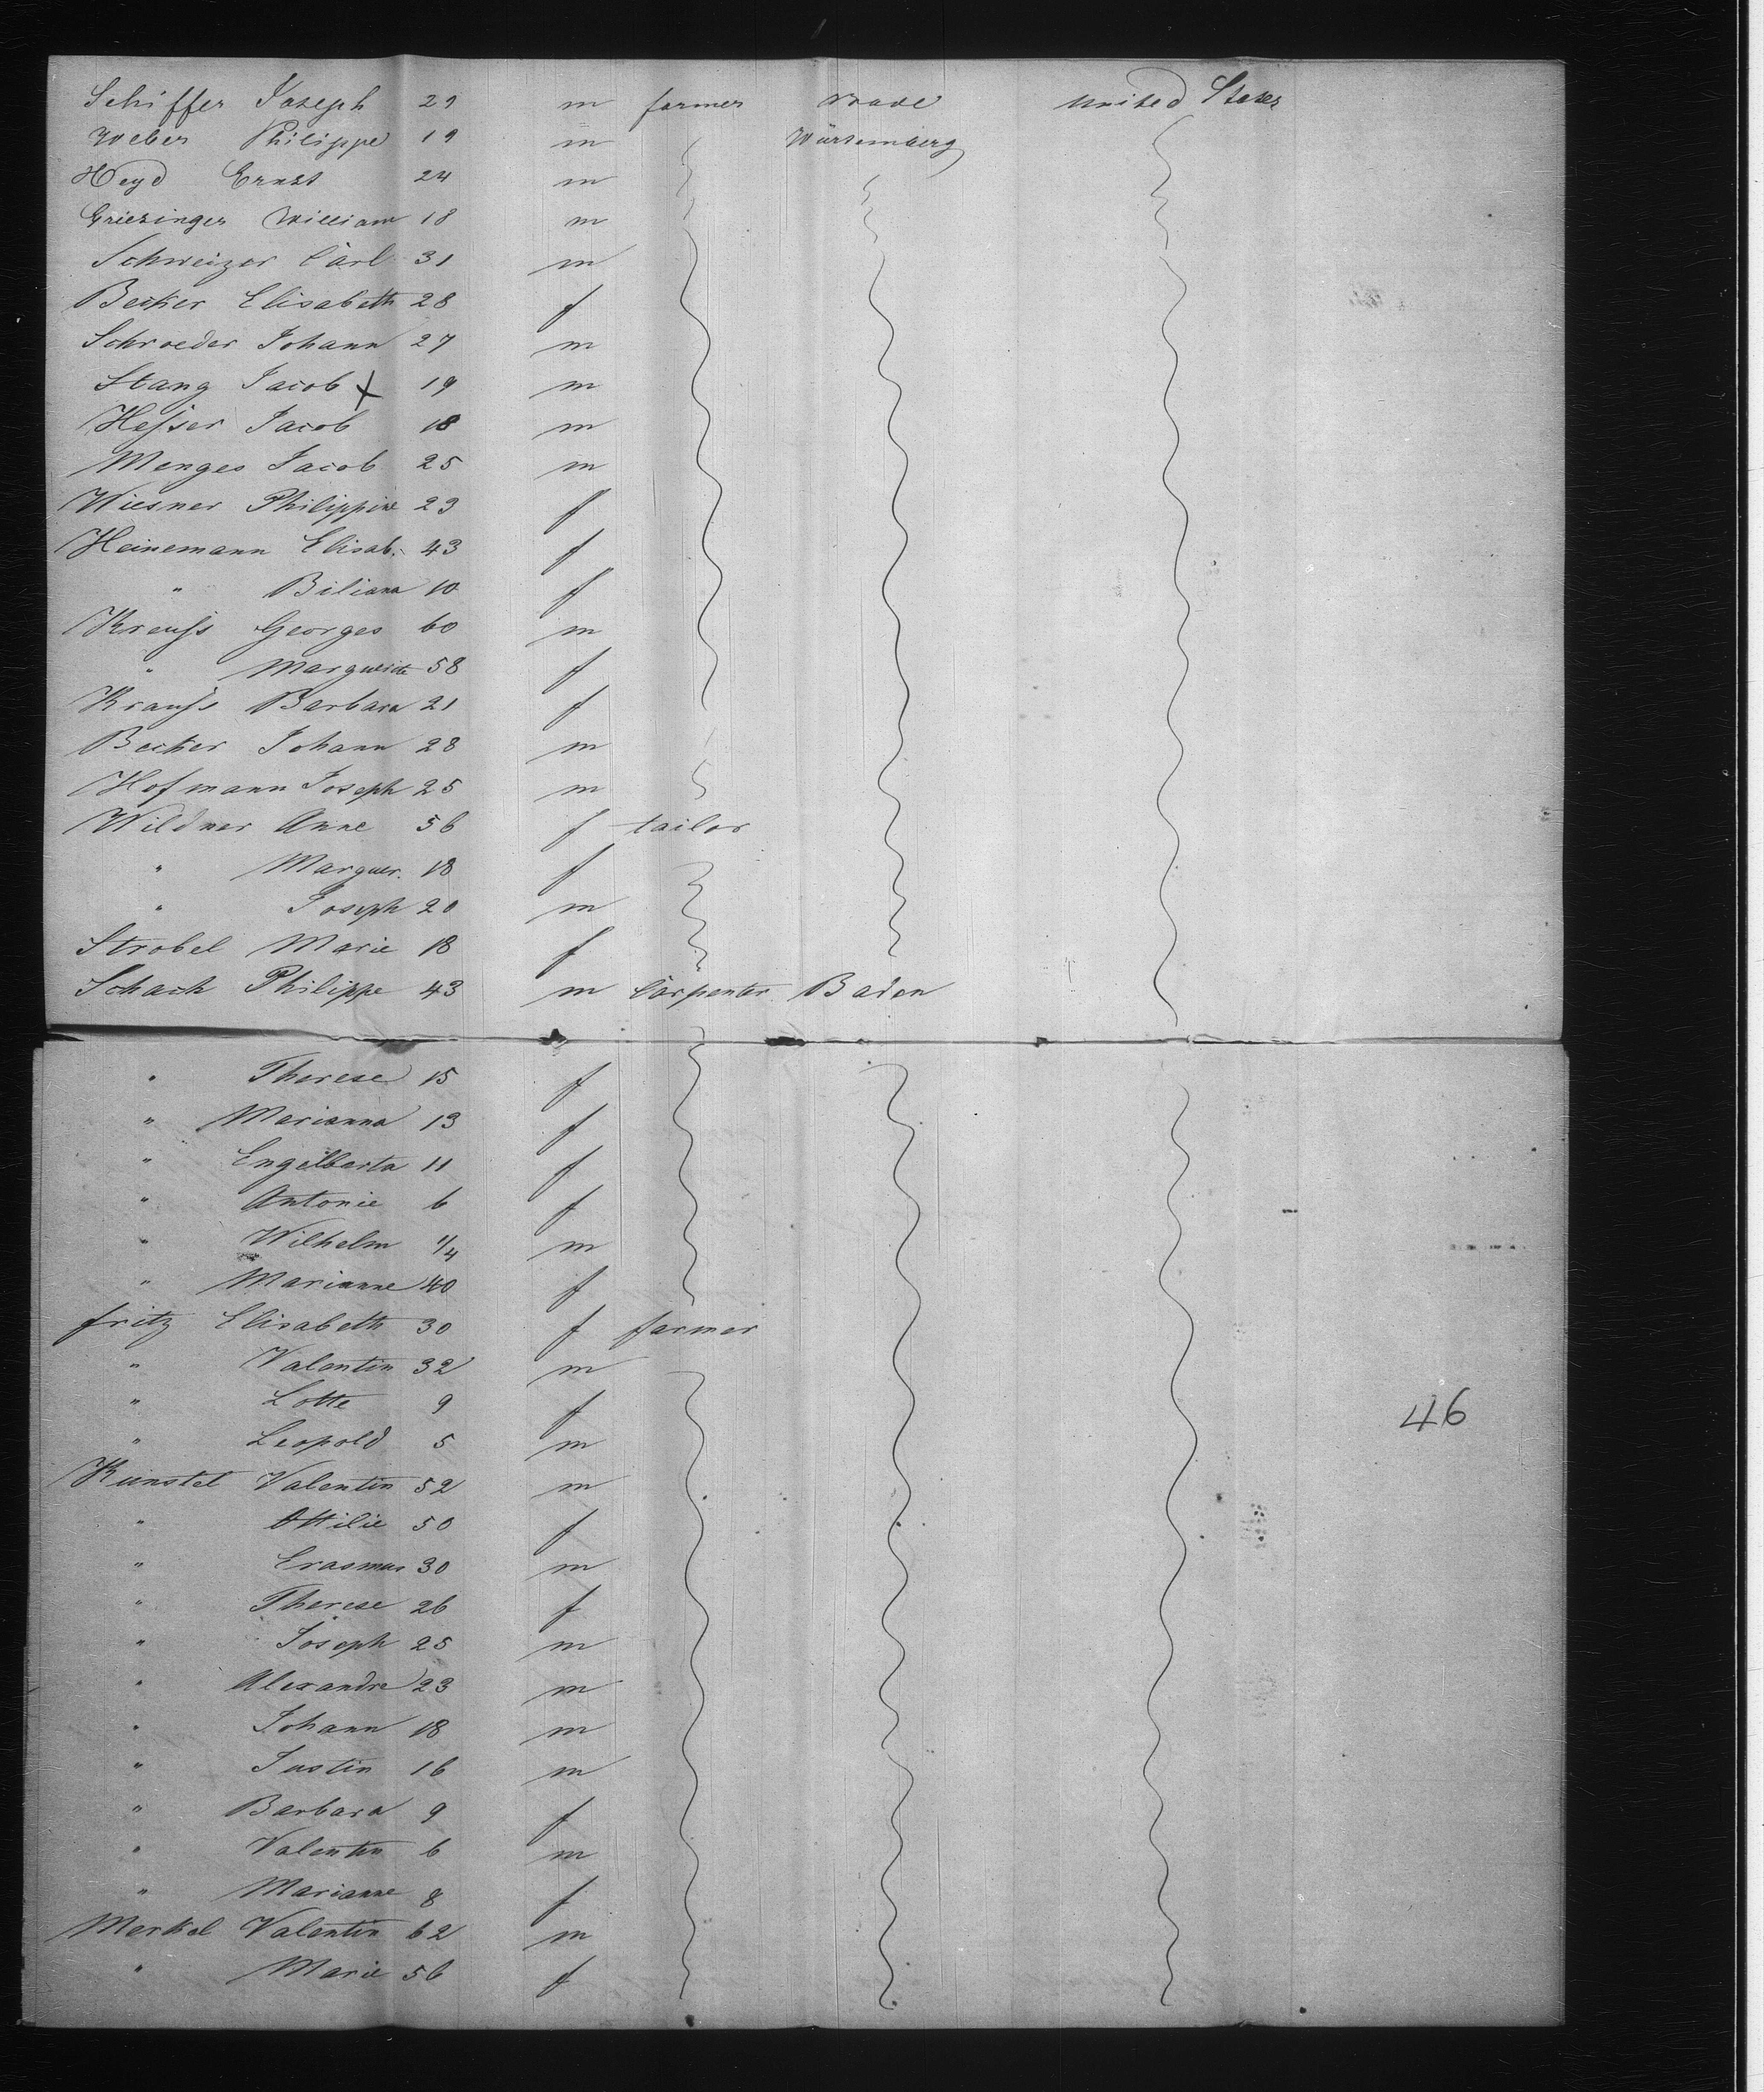 Schiffer Joseph 29 m farmer United States
Weber Philippe 19 m Würtemberg
Heyd Ernst 24 m
Griesinger William 18 m
Schweizer Carl 31 m
Becker Elisabeth 28 f
Schroeder Johann 27 m
Stang Jacob x 19 m
Hesser Jacob 18 m
Menges Jacob 25 m
Wiesner Philippine 23 f
Heinemann Elisab. 43 f
" Biliana 10 f
Kreuss Georges 60 m
" Marguerite 58 f
Krauss Barbara 21 f
Becker Johann 28 m
Hofmann Joseph 25 m
Wildner Anne 56 f tailor
" Marguer. 18 f
" Joseph 20 m
Strobel Marie 18 f
Schach Philippe 43 m Carpenter Baden
" Therese 15 f
" Marianna 13 f
" Engelberta 11 f
" Antonie 6 f
" Wilhelm 1/4 m
" Marianne 40 f
Fritz Elisabeth 30 f farmer
" Valentin 32 m
" Lotte 9 f
" Leopold 5 m
46
Künstel Valentin 52 m
" Ottilie 50 f
" Erasmus 30 m
" Therese 26 f
" Joseph 25 m
" Alexandre 23 m
" Johann 18 m
" Justin 16 m
" Barbara 9 f
" Valentin 6 m
" Marianne 8 f
Merkel Valentin 62 m
" Marie 56 f